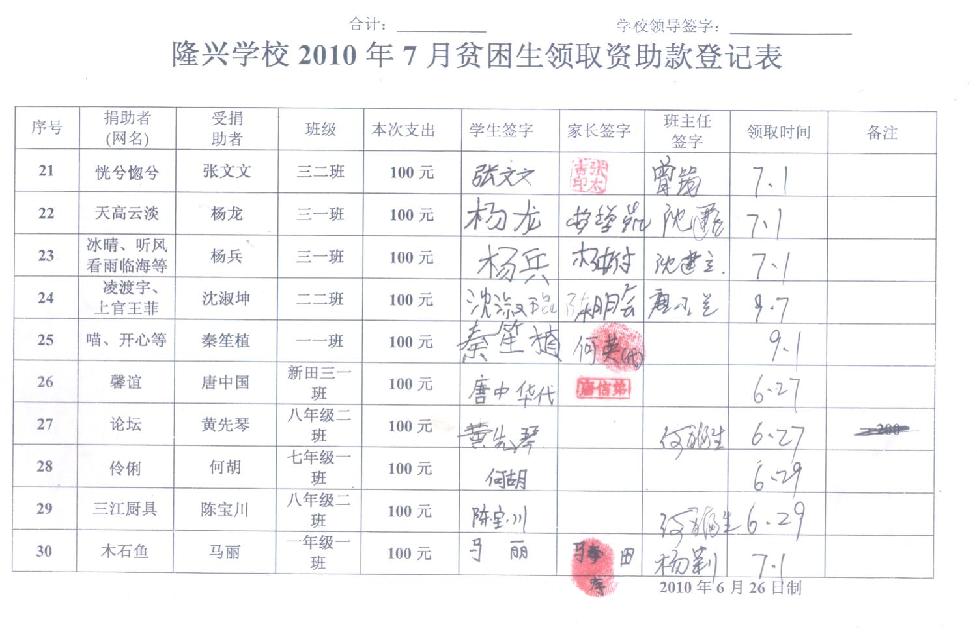 合计： 学校领导签字：
隆兴学校 2010 年 7 月贫困生领取资助款登记表
序号 捐助者(网名) 受捐助者 班级 本次支出 学生签字 家长签字 班主任签字 领取时间 备注
21 恍兮惚兮 张文文 三二班 100 元 张文文 7.1
22 天高云淡 杨龙 三一班 100 元 杨龙 7.1
23 冰晴、听风看雨临海等 杨兵 三一班 100 元 杨兵 沈建立 7.1
24 凌渡宇、上官王菲 沈淑坤 二二班 100 元 沈淑琨 9.7
25 喵、开心等 秦笙植 一一班 100 元 秦笙植 何英(代) 9.1
26 馨谊 唐中国 新田三一班 100 元 唐中华代 6.27
27 论坛 黄先琴 八年级二班 100 元 黄先琴 6.27 200
28 伶俐 何胡 七年级一班 100 元 何胡 6.29
29 三江厨具 陈宝川 八年级二班 100 元 陈宝川 6.29
30 木石鱼 马丽 一年级一班 100 元 马丽 7.1
2010 年 6 月 26 日制